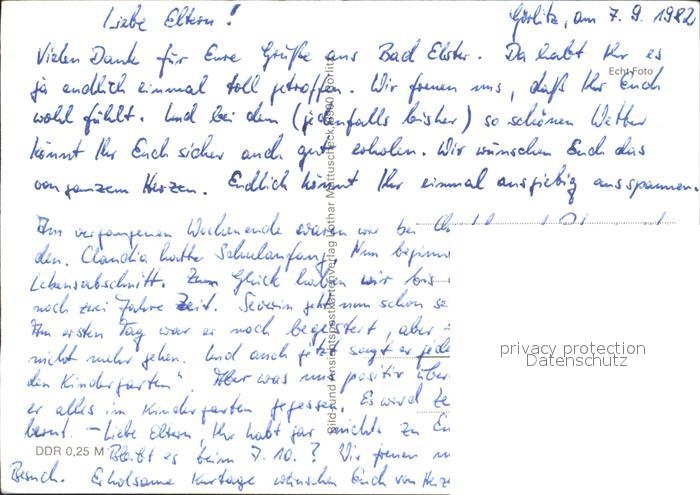 Liebe Eltern!
Görlitz, am 7. 9. 1982
Vielen Dank für Eure Grüße aus Bad Elster. Da habt Ihr es
Echt Foto
ja endlich einmal toll getroffen. Wir freuen uns, daß Ihr Euch
wohl fühlt. Und bei dem (jedenfalls bisher) so schönen Wetter
könnt Ihr Euch sicher auch gut erholen. Wir wünschen Euch das
von ganzem Herzen. Endlich könnt Ihr einmal ausgiebig ausspannen.
Am vergangenen Wochenende waren wir bei
den. Claudia hatte Schulanfang. Nun beginnt
Lebensabschnitt. Zum Glück haben wir bis
noch zwei Jahre Zeit. Severin geht nun schon
Am ersten Tag war er noch begeistert, aber
nicht mehr gehen. Und auch jetzt sagt er
den Kindergarten". Aber was uns positiv über
er alles im Kindergarten gegessen. Es wird
bernt. - Liebe Eltern, Ihr habt gar nichts zu
Bleibt es beim 7. 10.? Wir freuen
Besuch. Erholsame Kurtage wünschen Euch von Herz
DDR 0,25 M
Bild und Ansichtspostkartenverlag Lothar Mattuscheck, 8900 Görlitz
privacy protection
Datenschutz